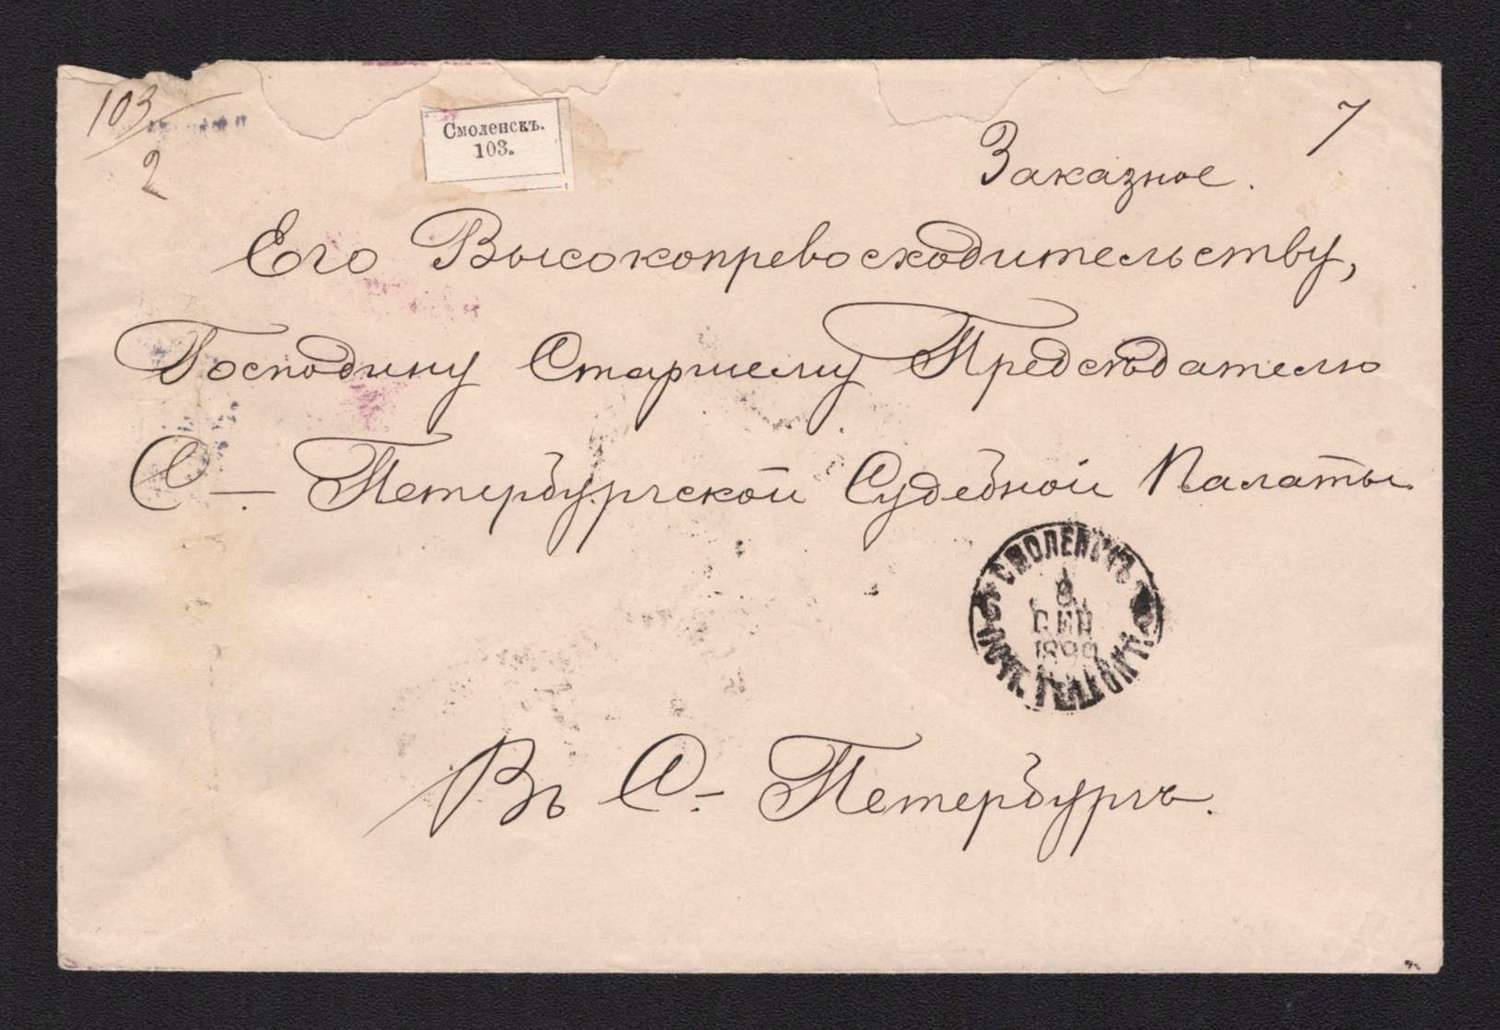 103
2
Смоленскъ.
103.
7
Заказное.
Его Высокопревосходительству,
Господину Старшему Предсѣдателю
С.-Петербургской Судебной Палаты.
СМОЛЕНСКЪ
8
СЕН
ПОЧТ. ТЕЛ. КОНТ.
Въ С.-Петербургъ.